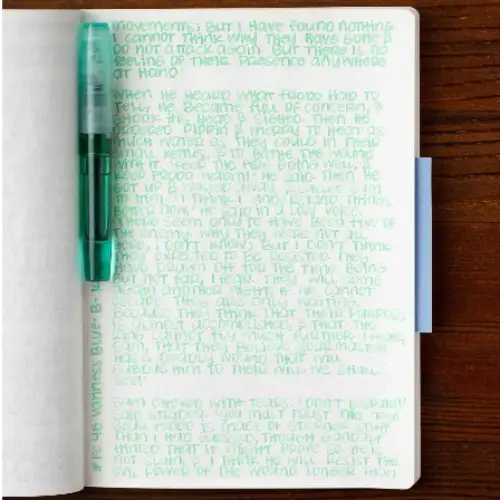 movements; but I have found nothing
I cannot think why they have gone &
do not attack again. But there is no
feeling of their presence anywhere
at hand.
When he heard what Frodo had to
tell, he became full of concern, &
shook his head & sighed. Then he
ordered Pippin & Merry to heat as
much water as they could in their
small kettles, & to bathe the wound
with it. Keep the fire going well, &
keep Frodo warm! he said. Then he
got up & walked away, & called Sam
to him. I think I understand things
better now, he said in a low voice.
There seem only to have been five of
the enemy. Why they were not all
here, I don't know; but I don't think
they expected to be resisted. They
have drawn off for the time being
But not far, I fear. They will come
again another night, if we cannot
escape. They are only waiting,
because they think that their purpose
is almost accomplished, & that the
Ring cannot fly much further. I fear,
Sam, that they believe your master
has a deadly wound that will
subdue him to their will. We shall
see!
Sam choked with tears. Don't despair!
said Strider. You must trust me now.
Your Frodo is made of sterner stuff
than I had guessed, though Gandalf
hinted that it might prove so. He is
not slain, & I think he will resist the
evil power of the wound longer than
Vanness Blue- B-